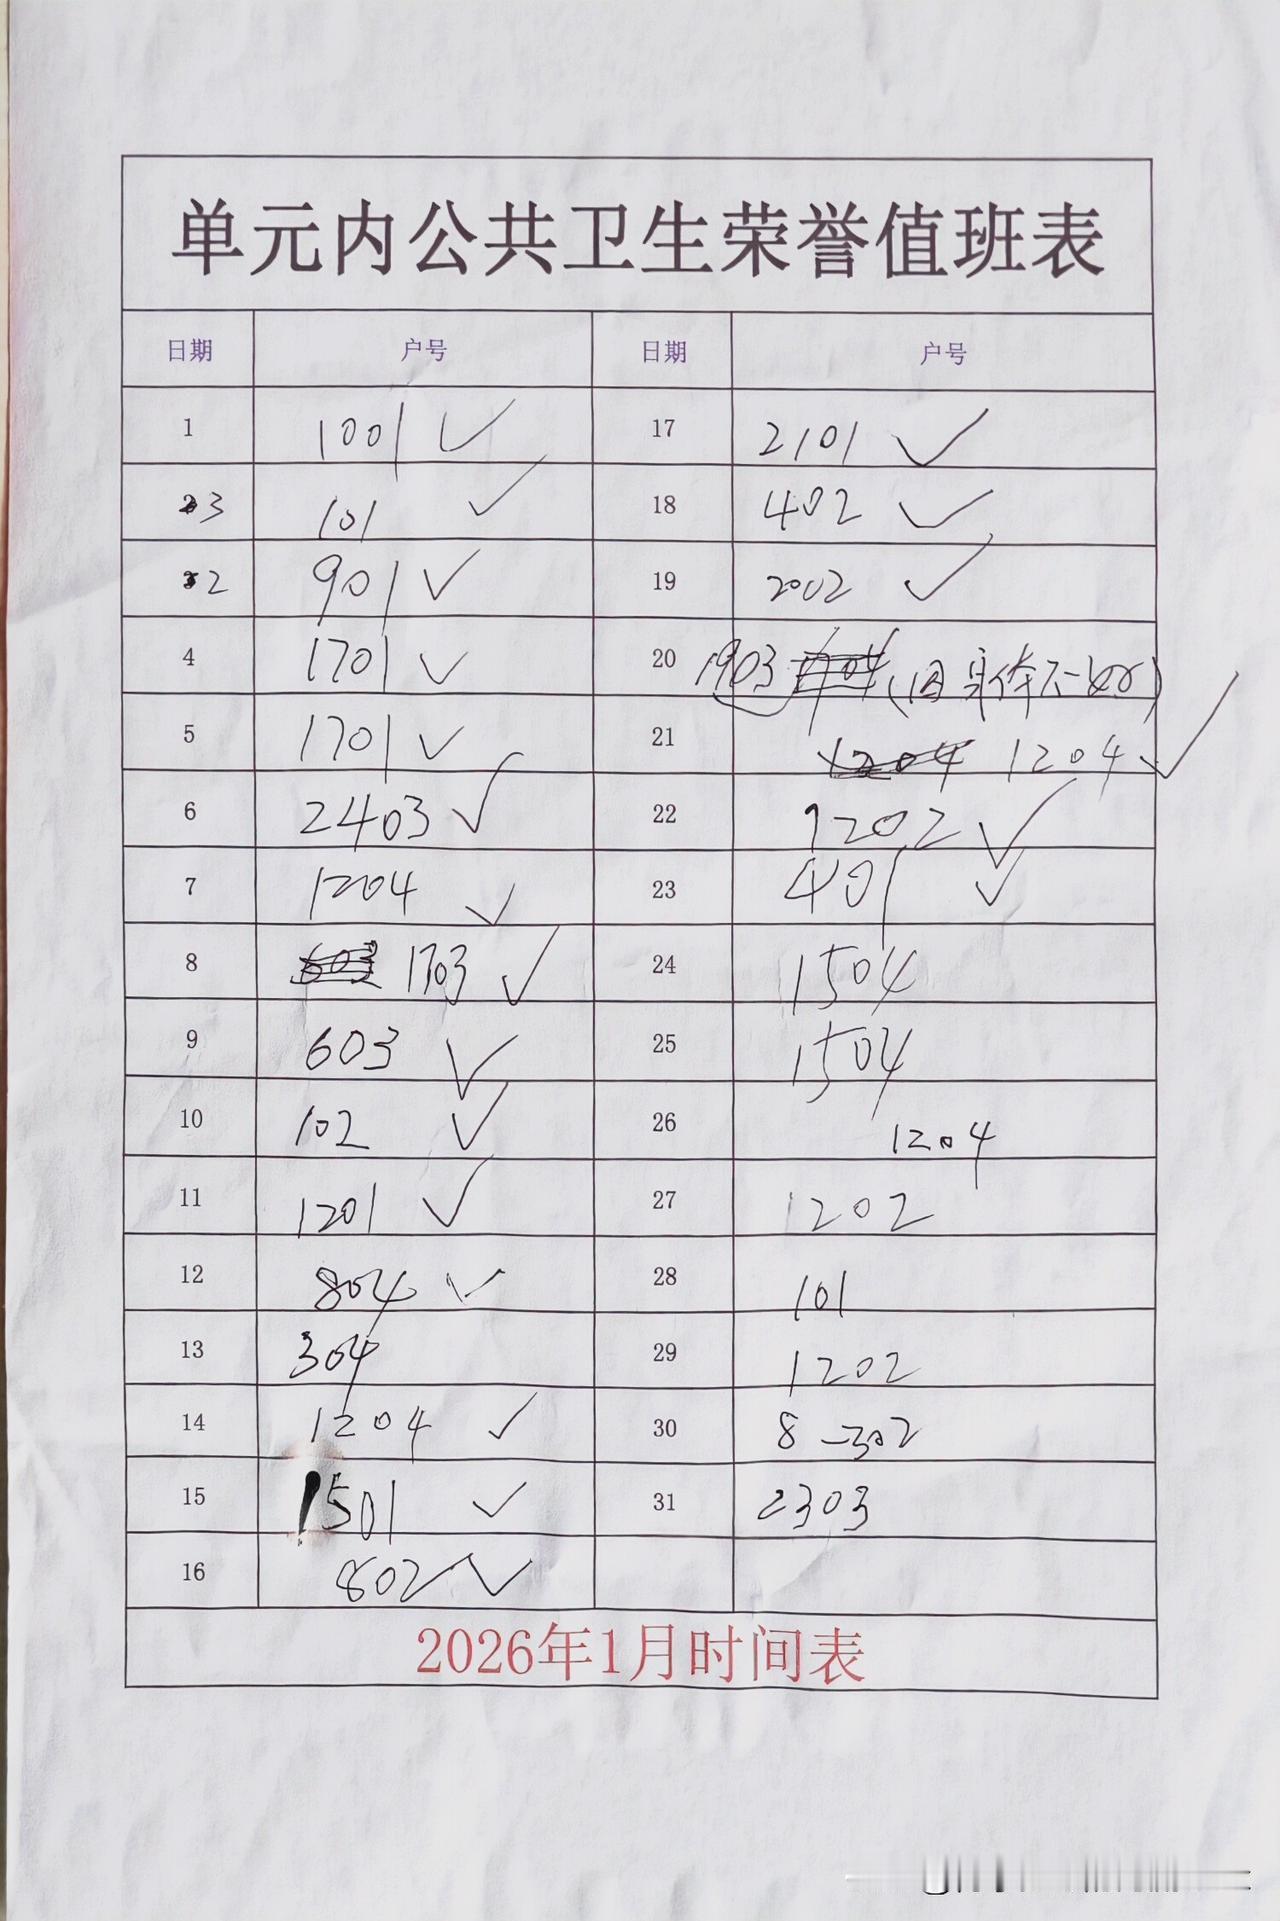 单元内公共卫生荣誉值班表
日期 户号 日期 户号
1 1001 ✓ 17 2101 ✓
3 101 ✓ 18 402 ✓
2 901 ✓ 19 2002 ✓
4 1701 ✓ 20 1903 (因身体不好)
5 1701 ✓ 21 1204 1204 ✓
6 2403 ✓ 22 1202 ✓
7 1204 ✓ 23 401 ✓
8 603 1703 ✓ 24 1504
9 603 ✓ 25 1504
10 102 ✓ 26 1204
11 1201 ✓ 27 1202
12 804 ✓ 28 101
13 304 29 1202
14 1204 ✓ 30 8-302
15 1501 ✓ 31 2303
16 802 ✓
2026年1月时间表